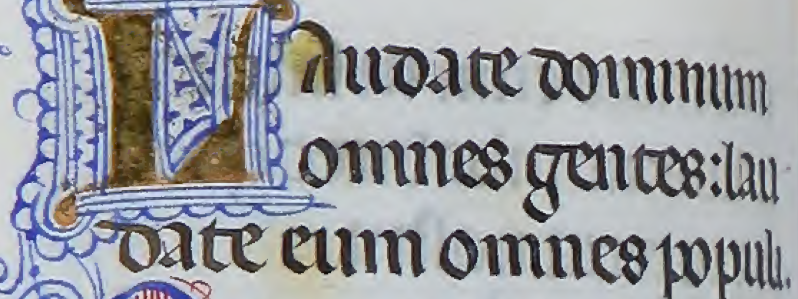 Laudate dominum
omnes gentes: lau
date eum omnes populi.